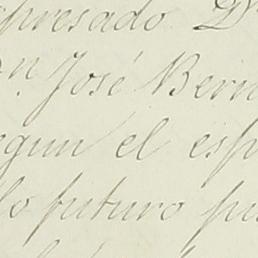 presado D
n. José Bern
egun el esp
lo futuro pu